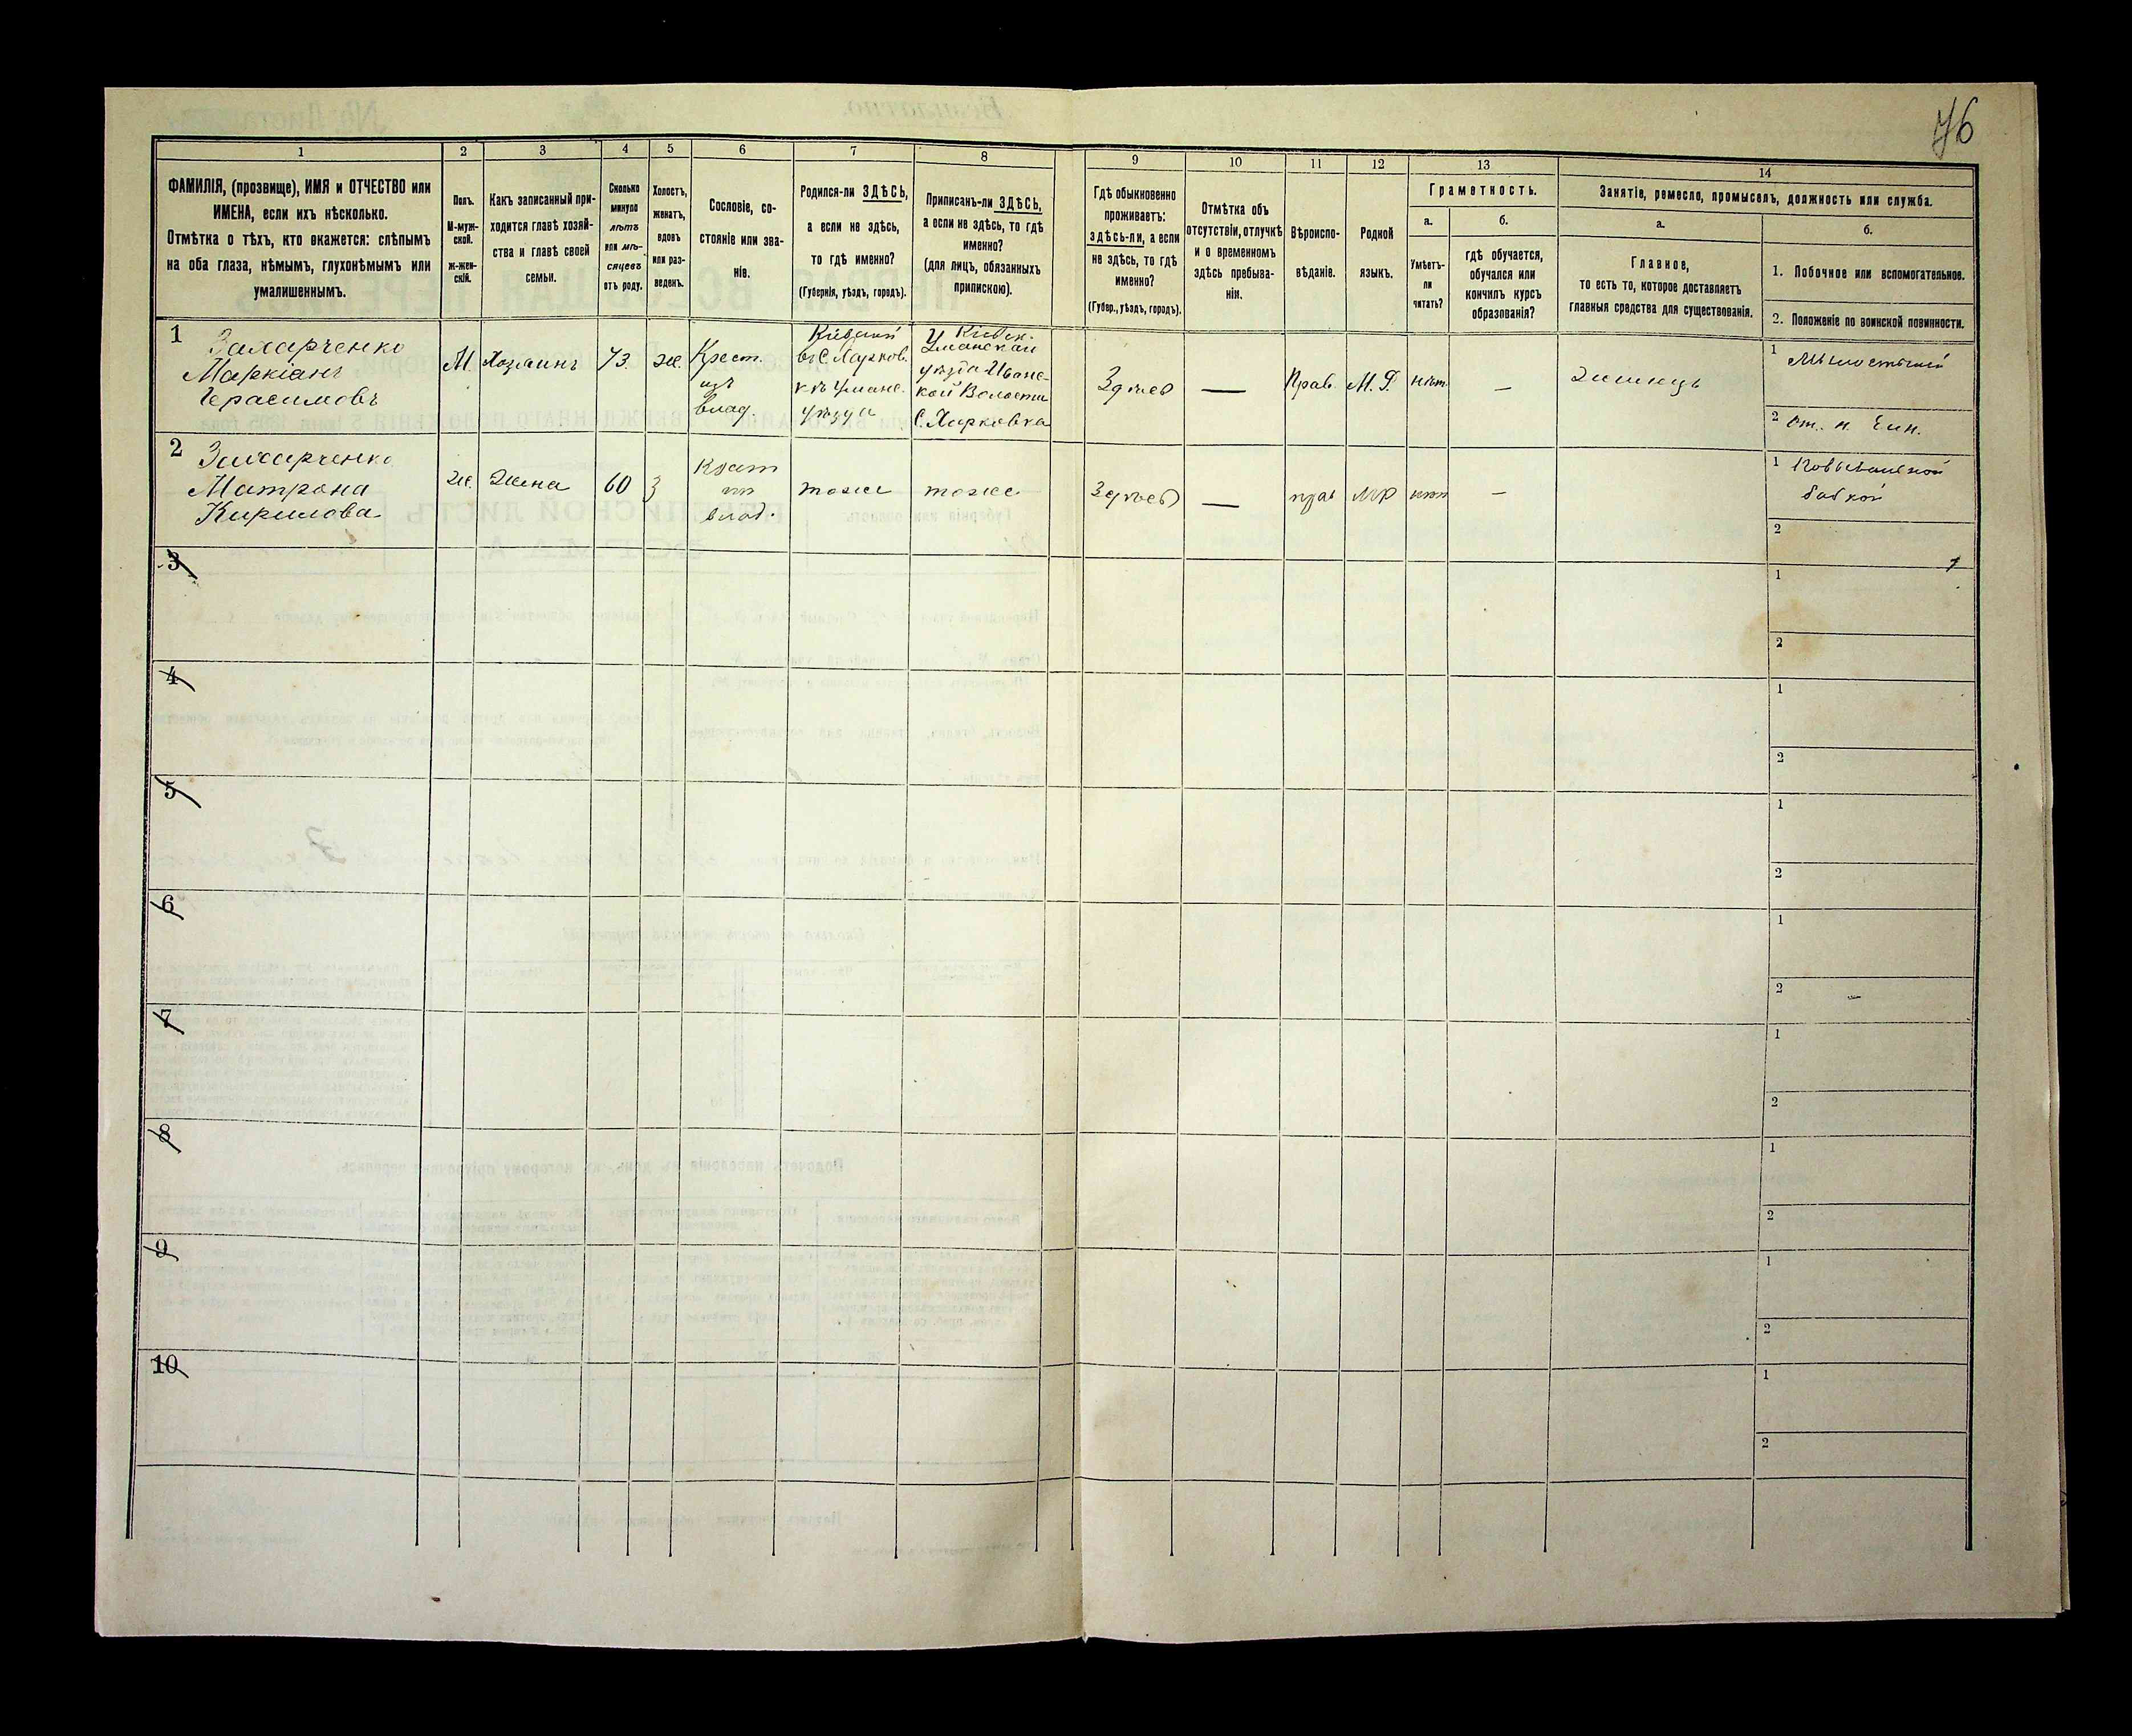 76
1
2
3
4
5
6
7
8
9
10
11
12
13
14
ФАМИЛІЯ, (прозвище), ИМЯ и ОТЧЕСТВО или
ИМЕНА, если ихъ нѣсколько.
Отмѣтка о тѣхъ, кто окажется: слѣпымъ
на оба глаза, нѣмымъ, глухонѣмымъ или
умалишеннымъ.
Полъ.
М-муж-
ской.
ж-жен-
скій.
Какъ записанный при-
ходится главѣ хозяй-
ства и главѣ своей
семьи.
Сколько
минуло
лѣтъ
или мѣ-
сяцевъ
отъ роду.
Холостъ,
женатъ,
вдовъ
или раз-
веденъ.
Сословіе, со-
стояніе или зва-
ніе.
Родился-ли ЗДѢСЬ,
а если не здѣсь,
то гдѣ именно?
(Губернія, уѣздъ, городъ).
Приписанъ-ли ЗДѢСЬ,
а если не здѣсь, то гдѣ
именно?
(для лицъ, обязанныхъ
припискою).
Гдѣ обыкновенно
проживаетъ:
здѣсь-ли, а если
не здѣсь, то гдѣ
именно?
(Губер., уѣздъ, городъ).
Отмѣтка объ
отсутствіи, отлучкѣ
и о временномъ
здѣсь пребыва-
ніи.
Вѣроиспо-
вѣданіе.
Родной
языкъ.
Грамотность.
а.
Умѣетъ-
ли
читать?
б.
гдѣ обучается,
обучался или
кончилъ курсъ
образованія?
Занятіе, ремесло, промыселъ, должность или служба.
а.
Главное,
то есть то, которое доставляетъ
главныя средства для существованія.
б.
1. Побочное или вспомогательное.
2. Положеніе по воинской повинности.
1
Захарченко
Маркіанъ
Герасимовъ
М.
Хозяинъ
73.
же.
Крест.
изъ
влад.
въ С. Харков.
кѣ Уманс.
уѣзда
Киевск.
Уманскаго
уѣзда Иванс-
кой Волости
С. Харковка
Здѣсь
—
Прав.
М. Р.
нѣтъ
—
1
2
2
Захарченко
Матрона
Кирилова
Ж.
Жена
60
З
влад.
тоже
тоже
Здѣсь
—
прав
МР
нѣтъ
—
1 Повивальной
бабкой
2
3
1
2
4
1
2
5
1
2
6
1
2
7
1
2
8
1
2
9
1
2
10
1
2